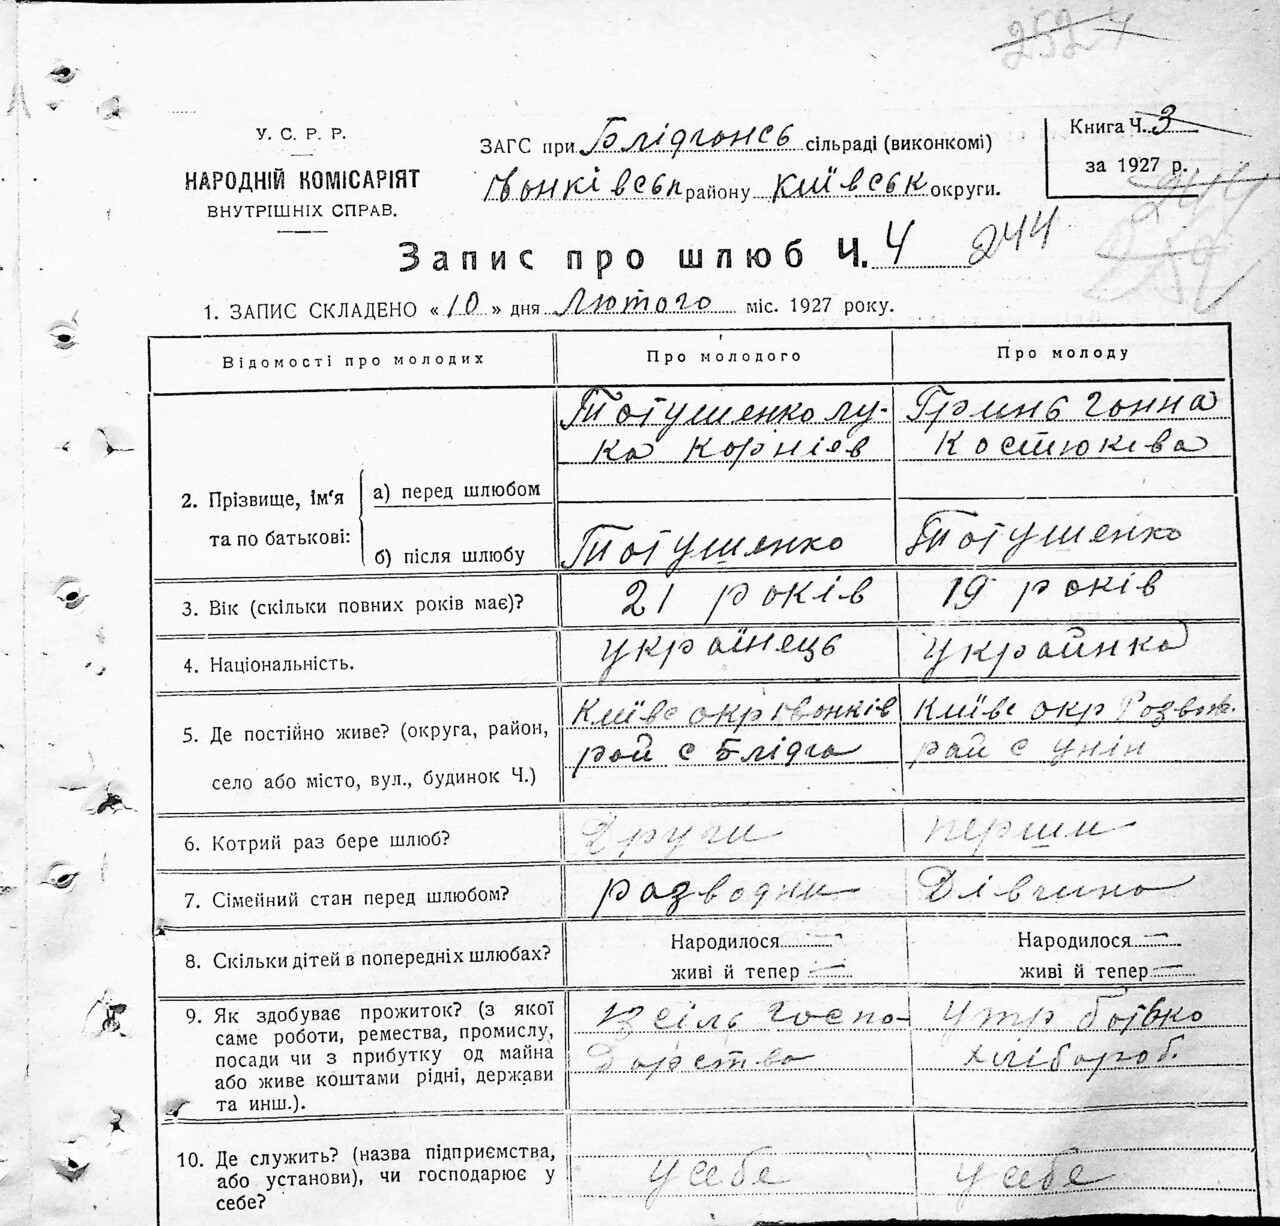 2524
У. С. Р. Р.
НАРОДНІЙ КОМІСАРІЯТ
ВНУТРІШНІХ СПРАВ.
ЗАГС при Блідчансь сільраді (виконкомі)
Іванківськ району Київськ округи.
Книга Ч. 3
за 1927 р.
244
Запис про шлюб Ч. 4 244
1. ЗАПИС СКЛАДЕНО «10» дня Лютого міс. 1927 року.
Відомості про молодих Про молодого Про молоду
Тотушенко Лу- Гринь Ганна
ка Корніев Костюкова
2. Прізвище, ім'я та по батькові: а) перед шлюбом
б) після шлюбу Тотушенко Тотушенко
3. Вік (скільки повних років має)? 21 років 19 років
4. Національність. українець украйнка
5. Де постійно живе? (округа, район, Київс окр Іванків Київс окр Розваж.
село або місто, вул., будинок Ч.) рай с Блідча рай с Унін
6. Котрий раз бере шлюб? Други перши
7. Сімейний стан перед шлюбом? разводни Дівчина
8. Скільки дітей в попередніх шлюбах? Народилося — Народилося —
живі й тепер — живі й тепер —
9. Як здобуває прожиток? (з якої із сіль госпо- утр батько
саме роботи, ремества, промислу, дарства хлібороб.
посади чи з прибутку од майна
або живе коштами рідні, держави
та инш.).
10. Де служить? (назва підприємства,
або установи), чи господарює у у себе у себе
себе?